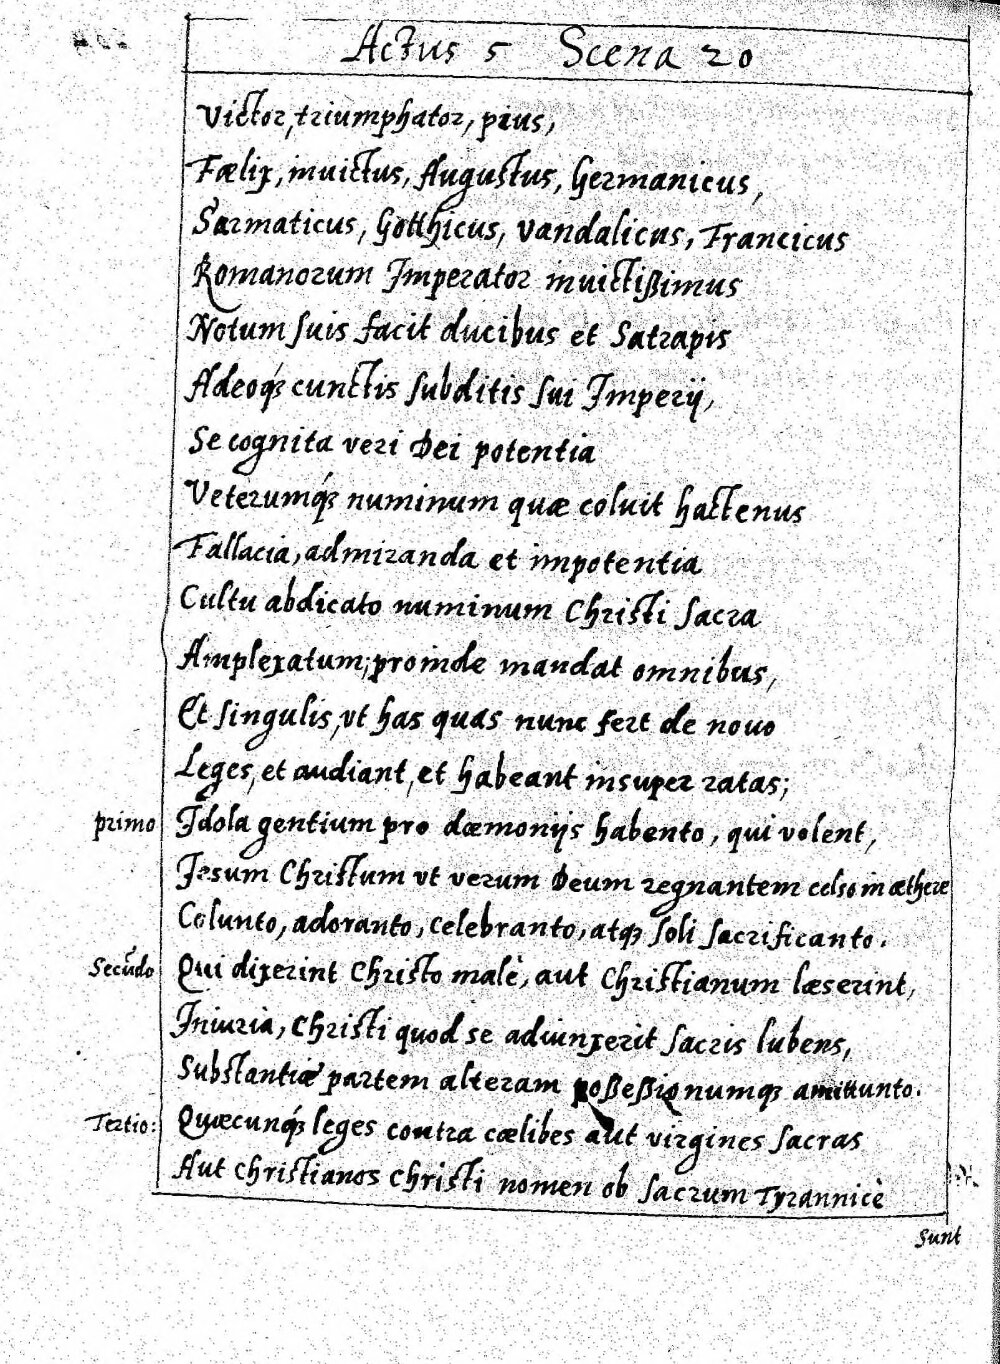 Actus 5 Scena 20
Victor, triumphator, pius,
Fælix, inuictus, Augustus, Germanicus,
Sarmaticus, Gotthicus, Vandalicus, Francicus
Romanorum Imperator inuictißimus
Notum suis facit ducibus et Satrapis
Adeoq́; cunctis subditis sui Imperij,
Se cognita veri Dei potentia
Veterumq́; numinum quæ coluit hactenus
Fallacia, admiranda et impotentia
Cultu abdicato numinum Christi sacra
Amplexatum; proinde mandat omnibus,
Et singulis, vt has quas nunc fert de nouo
Leges, et audiant, et habeant insuper ratas;
primo Idola gentium pro dæmonijs habento, qui volent,
Jesum Christum vt verum Deum regnantem celso in æthere
Colunto, adoranto, celebranto, atq; soli sacrificanto.
Secūdo Qui dixerint Christo malè, aut Christianum læserint,
Iniuria, Christi quod se adiunxerit sacris lubens,
Substantiæ partem alteram poßeßionumq; amittunto.
Tertio: Quæcunq́; leges contra cœlibes aut virgines sacras
Aut christianos christi nomen ob sacrum Tyrannicè
Sunt